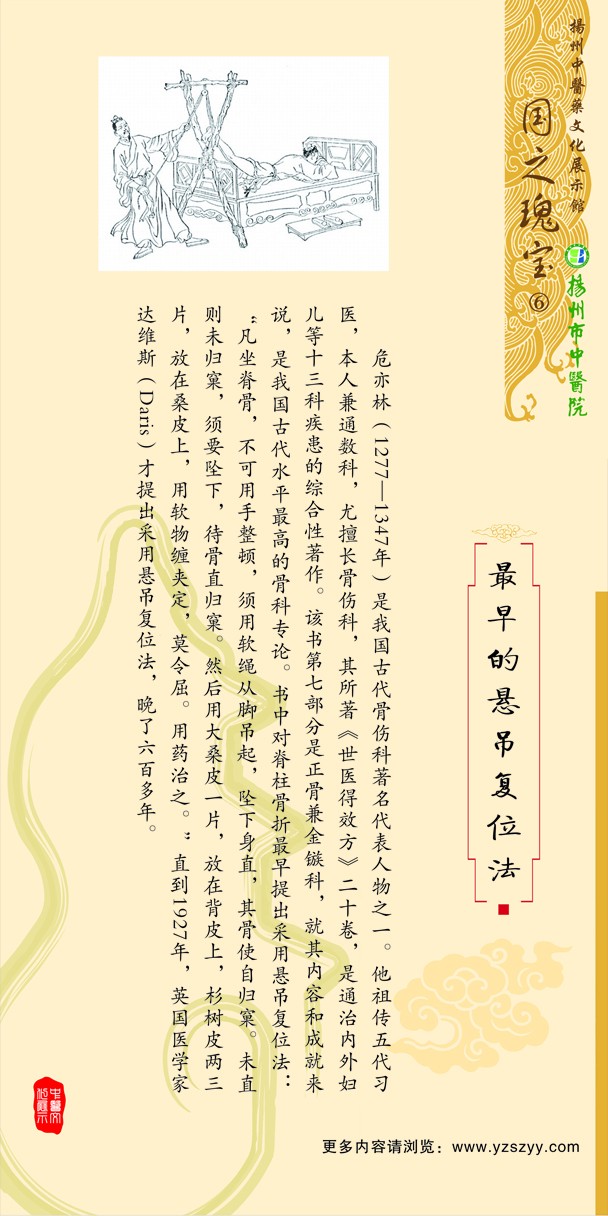 揚州中醫藥文化展示館
国之瑰宝⑥
揚州市中醫院
最早的悬吊复位法
危亦林（1277—1347年）是我国古代骨伤科著名代表人物之一。他祖传五代习
医，本人兼通数科，尤擅长骨伤科，其所著《世医得效方》二十卷，是通治内外妇
儿等十三科疾患的综合性著作。该书第七部分是正骨兼金镞科，就其内容和成就来
说，是我国古代水平最高的骨科专论。书中对脊柱骨折最早提出采用悬吊复位法：
“凡坐脊骨，不可用手整顿，须用软绳从脚吊起，坠下身直，其骨使自归窠。未直
则未归窠，须要坠下，待骨直归窠。然后用大桑皮一片，放在背皮上，杉树皮两三
片，放在桑皮上，用软物缠夹定，莫令屈。用药治之。”直到1927年，英国医学家
达维斯（Daris）才提出采用悬吊复位法，晚了六百多年。
更多内容请浏览：www.yzszyy.com